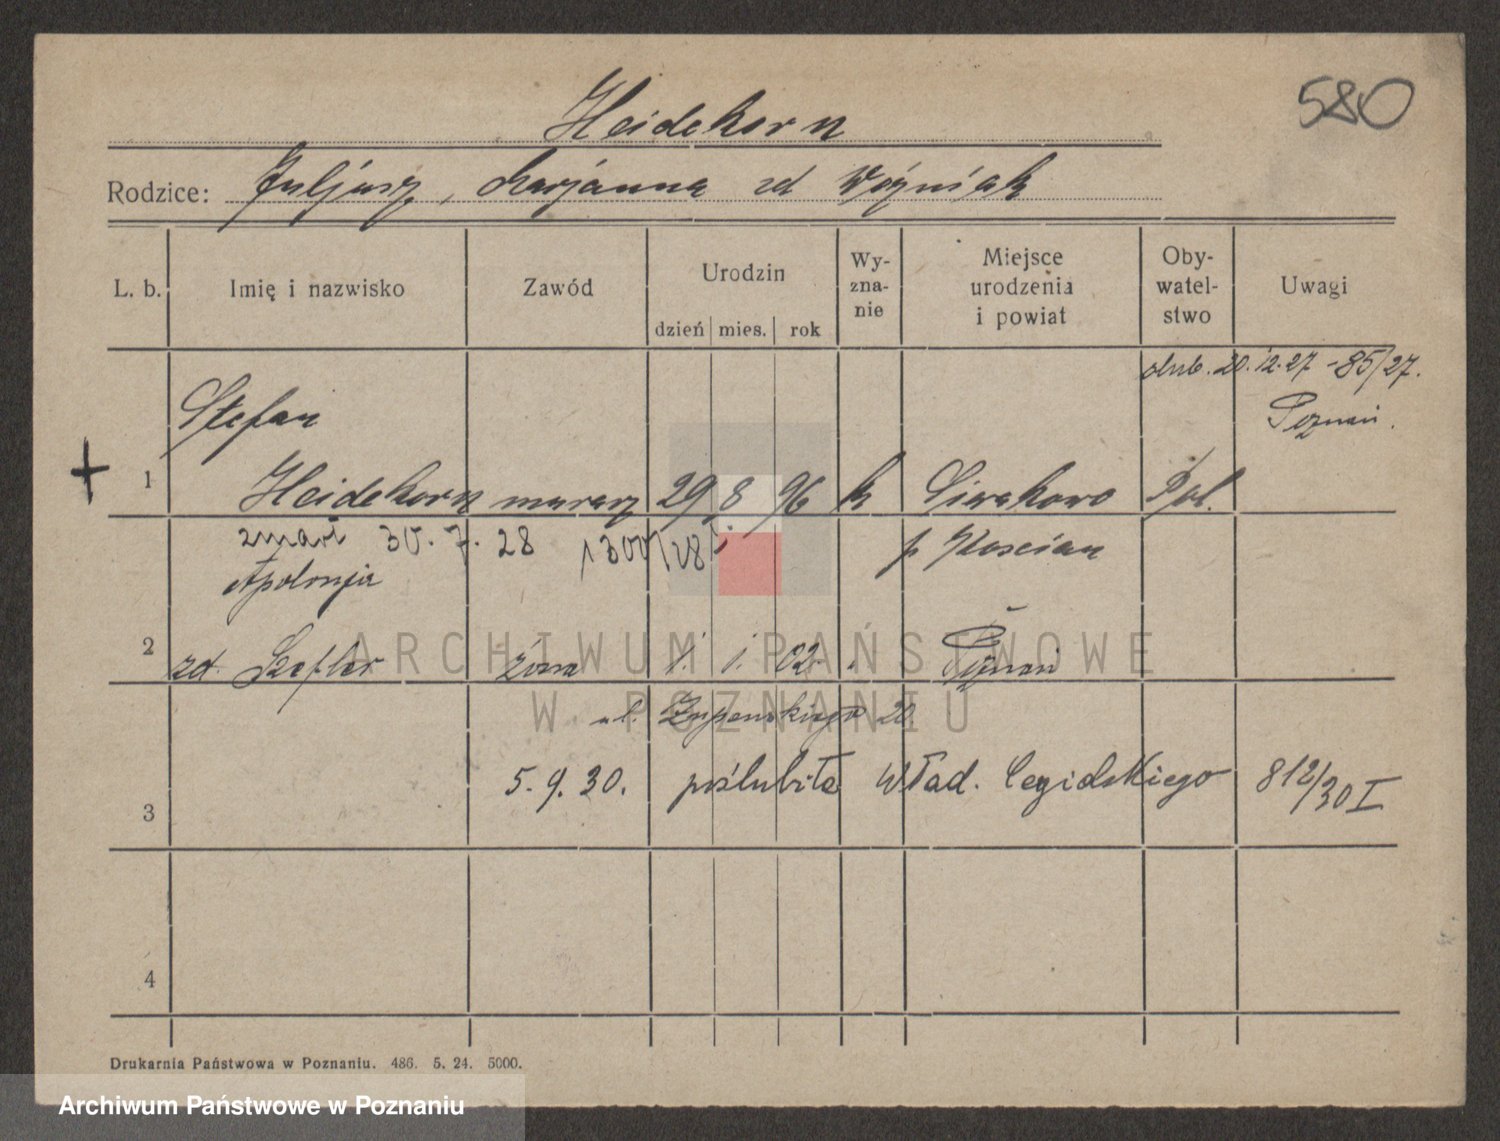 580
Heidekorn
Rodzice: Juljusz, Marjanna zd Woźniak
L. b. Imię i nazwisko Zawód Urodzin dzień mies. rok Wy-zna-nie Miejsce urodzenia i powiat Oby-watel-stwo Uwagi
ślub. 20.12.27 - 85/27.
Poznań.
Stefan
+ 1 Heidekorn murarz 29 8. 96 k Siwakowo Pol.
zmarł 30. 7. 28 1300/28 p Kościan
Apolonja
2 zd. Szefler żona 1. 1. 02. Poznań
ul. Żupańskiego 20
5. 9. 30. poślubiła Wład. Cegielskiego 812/30 I
3
4
Drukarnia Państwowa w Poznaniu. 486. 5. 24. 5000.
ARCHIWUM PAŃSTWOWE
W POZNANIU
Archiwum Państwowe w Poznaniu